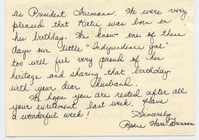 as President Trumans. We were very
pleased that Katie was born on
his birthday. We know one of these
days our "little Independence gal"
too will feel very proud of her
heritage and sharing that birthday
with your dear Husband.
We hope you are rested after all
your excitement last week. Have
a wonderful week!
Sincerely